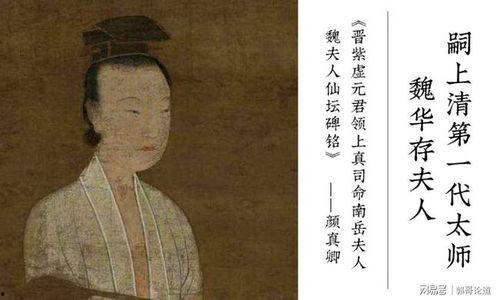 嗣上清第一代太师
魏华存夫人
《晋紫虚元君领上真司命南岳夫人
魏夫人仙坛碑铭》
——颜真卿
网易号 | 郭哥论道